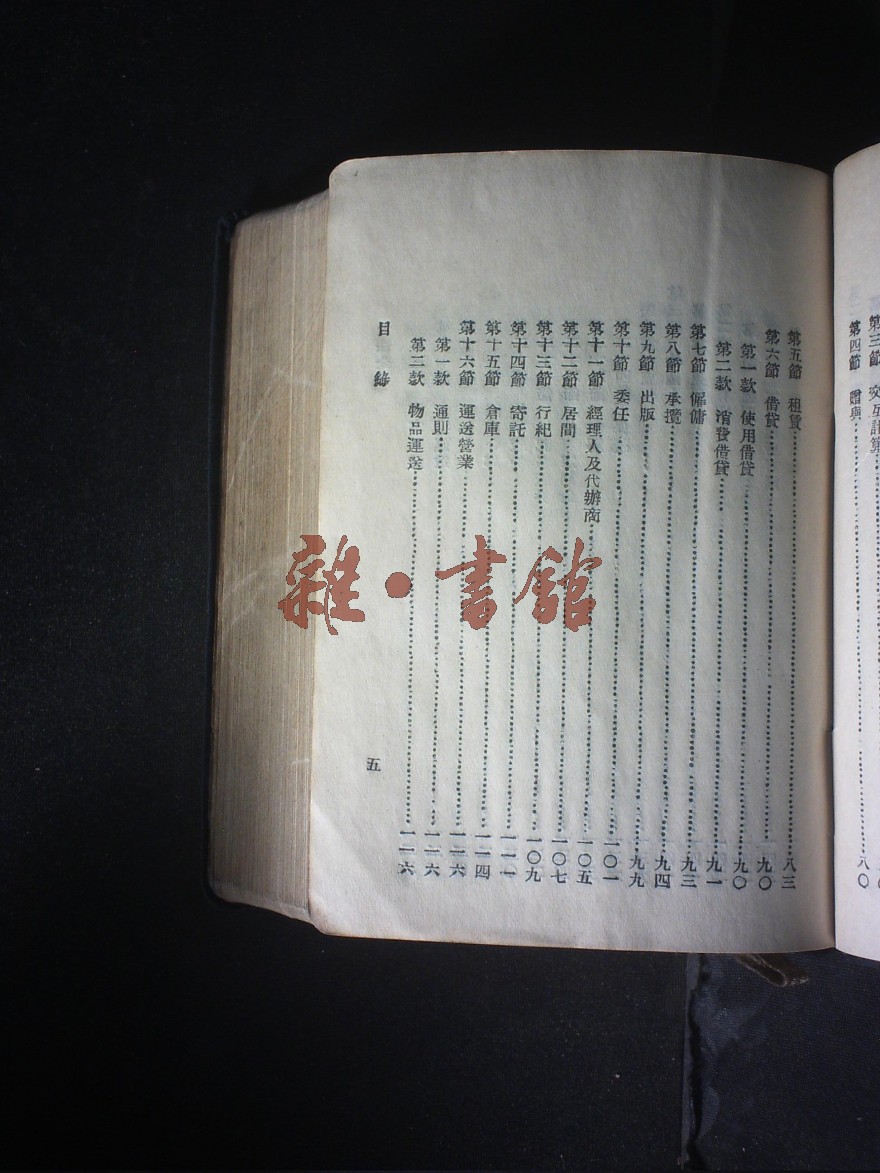 第四節　贈與……八〇
第五節　租賃……八三
第六節　借貸……九〇
第一款　使用借貸……九〇
第二款　消費借貸……九一
第七節　僱傭……九三
第八節　承攬……九四
第九節　出版……九九
第十節　委任……一〇一
第十一節　經理人及代辦商……一〇五
第十二節　居間……一〇七
第十三節　行紀……一〇九
第十四節　寄託……一一一
第十五節　倉庫……一一四
第十六節　運送營業……一一六
第一款　通則……一一六
第二款　物品運送……一一六
目錄
五
雜·書館